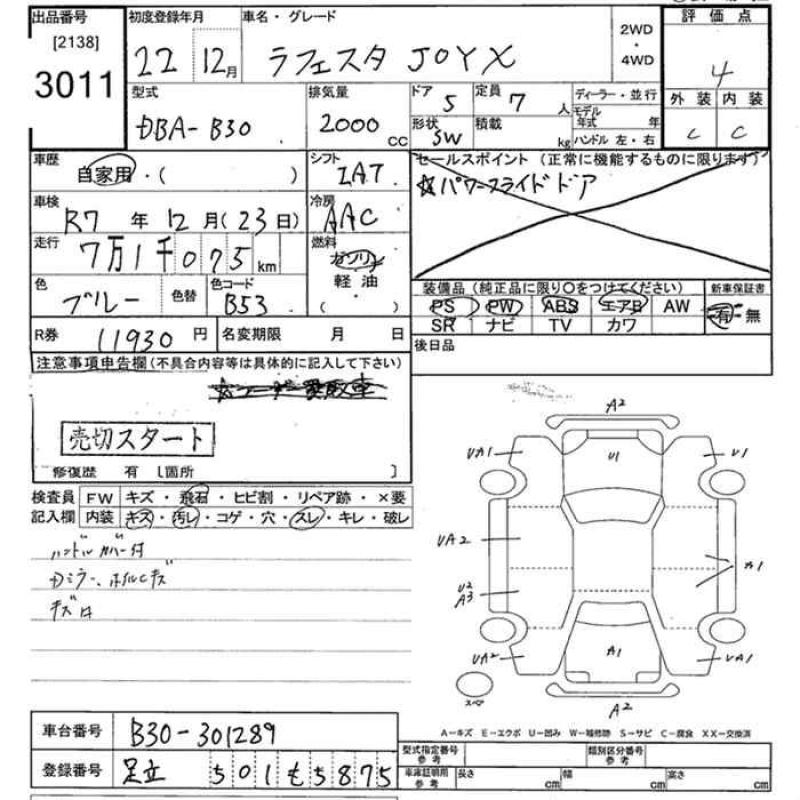 出品番号 初度登録年月 車名・グレード 評価点
[2138]
3011
22 12月 ラフェスタ JOYX 2WD・4WD 4
型式 排気量 ドア 5 定員 7人 ディーラー・並行 外装 内装
DBA-B30 2000cc 形状 SW 積載 kg モデル年式 年 C C
ハンドル 左・右
車歴 自家用・( ) シフト IAT セールスポイント (正常に機能するものに限ります)
☆パワースライドドア
車検 R7年 12月(23日) 冷房 AAC
走行 7万1千075km 燃料 ガソリン
軽油
( )
色 ブルー 色替 色コード B53 装備品 (純正品に限り○をつけてください) 新車保証書
PS PW ABS エアB AW 有・無
SR ナビ TV カワ
R券 11930円 名変期限 月 日 後日品
注意事項申告欄(不具合内容等は具体的に記入して下さい)
売切スタート
修復歴 有 [箇所 ]
検査員 FW キズ・飛石・ヒビ割・リペア跡・×要
記入欄 内装 キズ・汚レ・コゲ・穴・スレ・キレ・破レ
ハンドルカバー付
Dミラー、ホイルCキズ
A2
UA1 U1 U1
UA2 A1
U2
A3
UA2 A1 UA1
スペア A2
A-キズ E-エクボ U-凹み W-補修跡 S-サビ C-腐食 XX-交換済
車台番号 B30-301289
登録番号 足立 501 も 5875
型式指定番号 参考 類別区分番号 参考
車庫証明用 参考 長さ cm 幅 cm 高さ cm